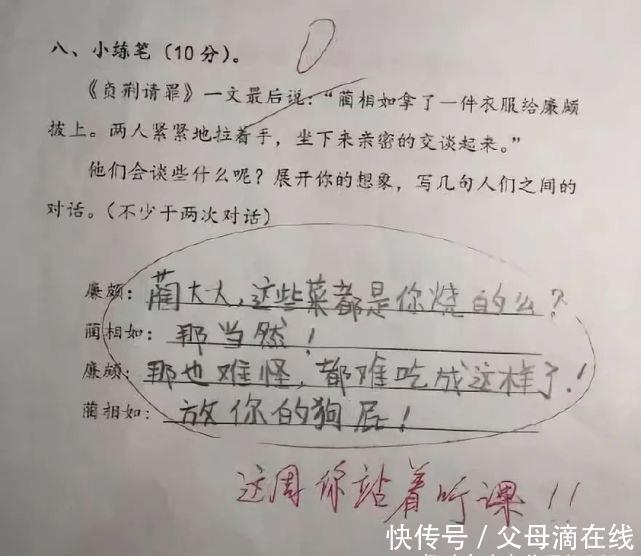 八、小练笔（10分）。
《负荆请罪》一文最后说：“蔺相如拿了一件衣服给廉颇
披上。两人紧紧地拉着手，坐下来亲密的交谈起来。”
他们会谈些什么呢？展开你的想象，写几句人们之间的
对话。（不少于两次对话）
廉颇：蔺大人，这些菜都是你烧的么？
蔺相如：那当然！
廉颇：那也难怪，都难吃成这样了！
蔺相如：放你的狗屁！
这周你站着听课！！
快传号／父母滴在线